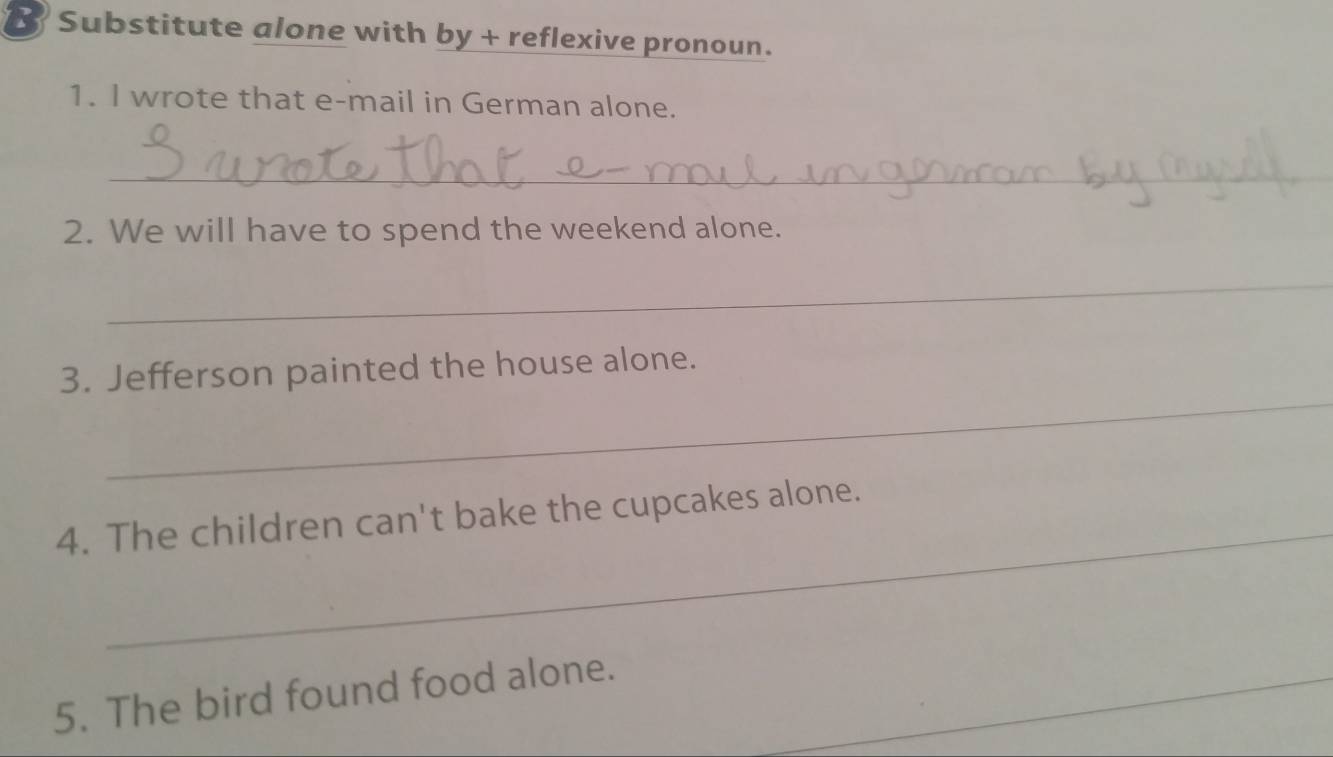 B Substitute alone with by + reflexive pronoun.
1. I wrote that e-mail in German alone.
I wrote that e-mail in german by myself.
2. We will have to spend the weekend alone.
3. Jefferson painted the house alone.
4. The children can't bake the cupcakes alone.
5. The bird found food alone.